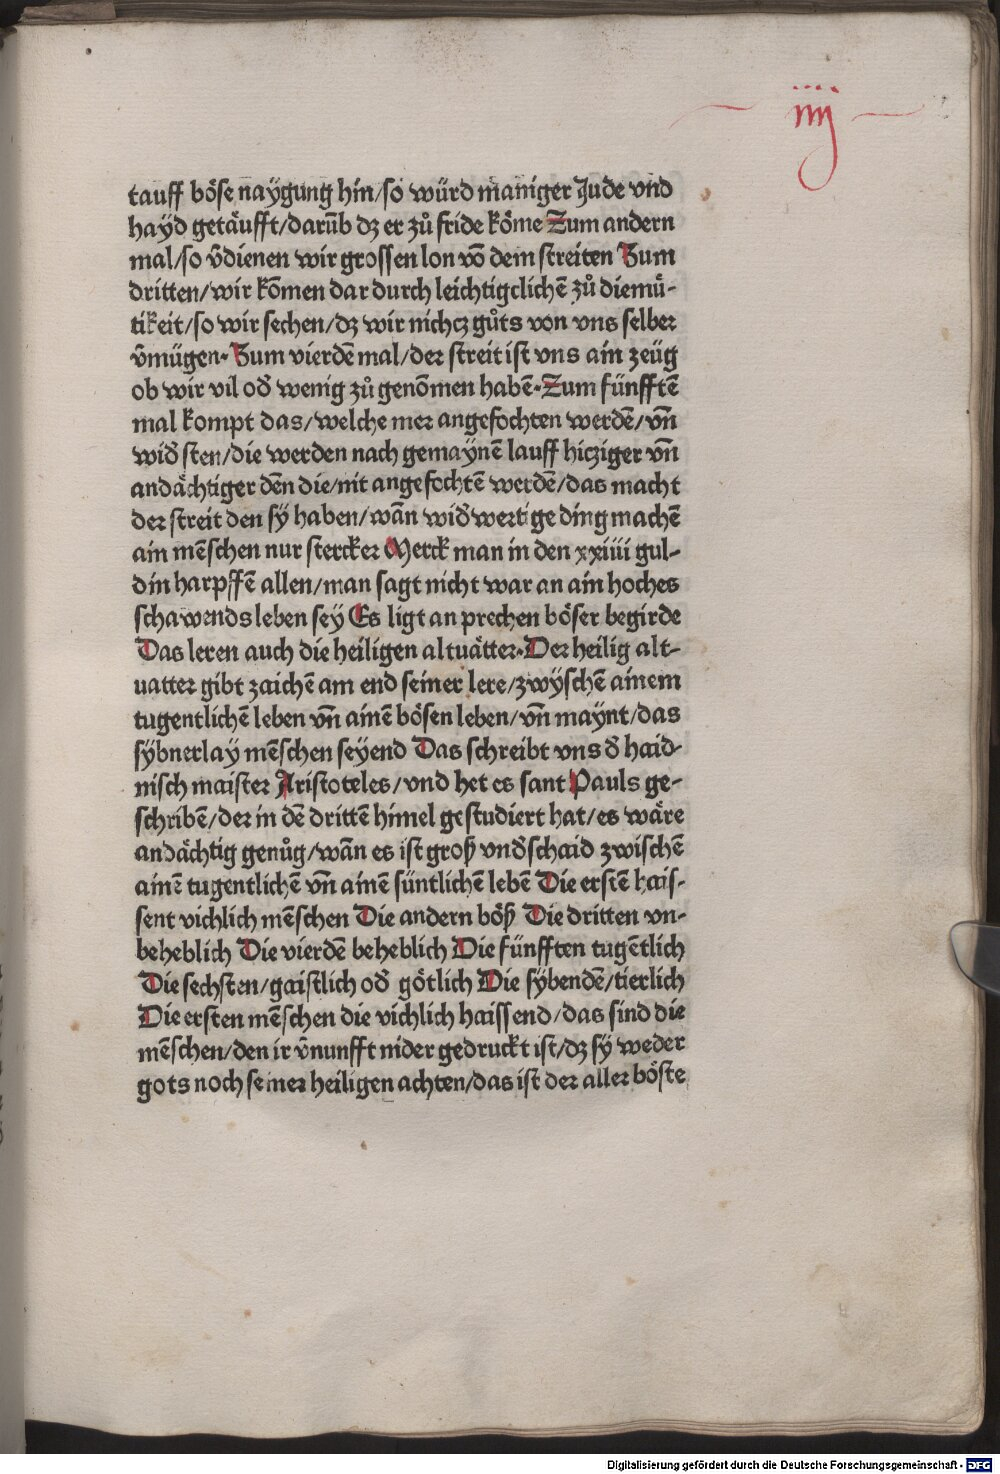 iiij
tauff böse naÿgung hin/so würd maniger Jude vnd
hayd getäufft/darūb dz er zů fride köme Zum andern
mal/so v̄dienen wir grossen lon vō dem streiten Zum
dritten/wir kōmen dar durch leichtigclichē zů diemü-
tikeit/so wir sechen/dz wir nichcz gůts von vns selber
v̄mügen· Zum vierdē mal/der streit ist vns ain zeüg
ob wir vil od̄ wenig zů genōmen habē·Zum fünfftē
mal kompt das/welche mer angefochten werdē/vn̄
wid̄ sten/die werden nach gemaynē lauff hicziger vn̄
andächtiger dēn die/nit angefochtē werdē/das macht
der streit den sÿ haben/wān wid̄wertige ding machē
ain mēschen nur stercker Merck man in den xxiiii gul-
din harpffē allen/man sagt nicht war an ain hoches
schawends leben seÿ Es ligt an prechen böser begirde
Das leren auch die heiligen altuätter·Der heilig alt-
uatter gibt zaichē am end seiner lere/zwÿschē ainem
tugentlichē leben vn̄ ainē bösen leben/vn̄ maynt/das
sÿbnerlay mēschen seyend Das schreibt vns d̄ haid-
nisch maister Aristoteles/vnd het es sant Pauls ge-
schribē/der in dē drittē himel gestudiert hat/es wäre
andächtig genůg/wān es ist groß vnd̄schaid zwischē
ainē tugentlichē vn̄ ainē süntlichē lebē Die erstē hais-
sent vichlich mēschen Die andern böß Die dritten vn-
beheblich Die vierdē beheblich Die fünfften tugētlich
Die sechsten/gaistlich od̄ götlich Die sÿbendē/tierlich
Die ersten mēschen die vichlich haissend/das sind die
mēschen/den ir v̄nunfft nider gedruckt ist/dz sÿ weder
gots noch seiner heiligen achten/das ist der aller böste
Digitalisierung gefördert durch die Deutsche Forschungsgemeinschaft - DFG